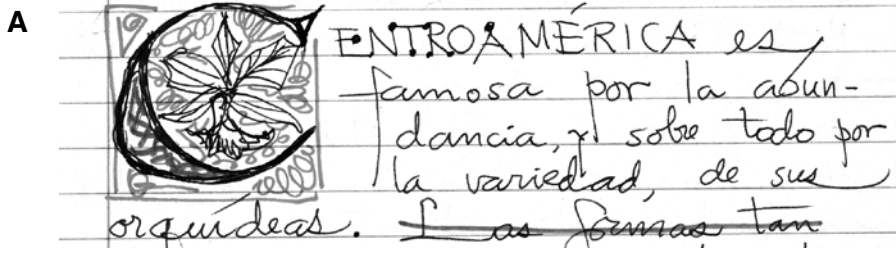 A
CENTROAMÉRICA es
famosa por la abun-
dancia, y sobre todo por
la variedad, de sus
orquídeas. Las formas tan